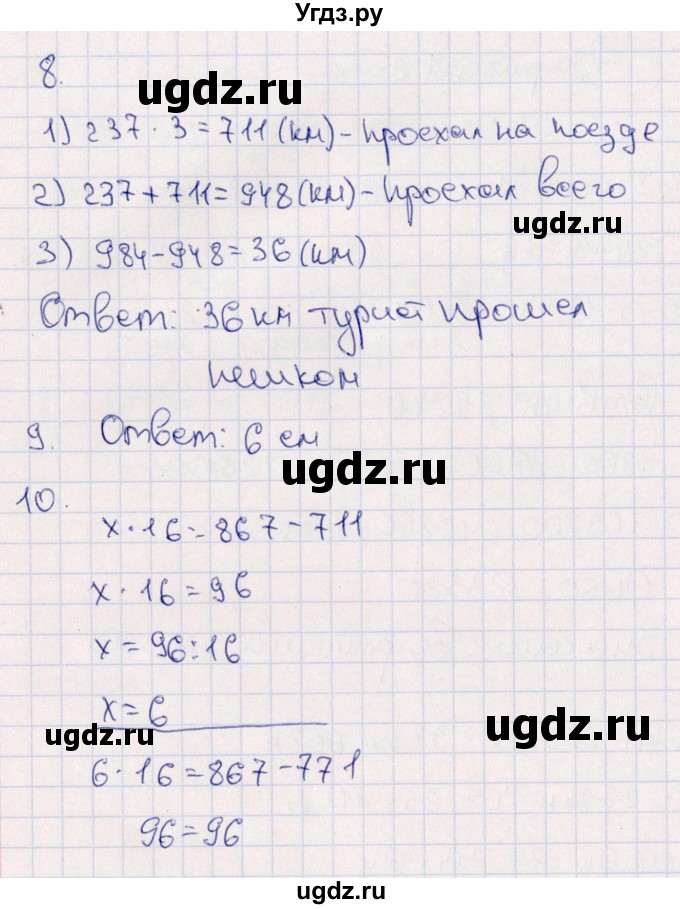 Угдз.ру
8.
ugdz.ru
1) 237 · 3 = 711 (км) - проехал на поезде
2) 237 + 711 = 948 (км) - проехал всего
ugdz.ru
3) 984 - 948 = 36 (км)
Ответ: 36 км турист прошел
пешком
9. Ответ: 6 см
ugdz.ru
10.
x · 16 = 867 - 711
x · 16 = 96
ugdz.ru
x = 96 : 16
x = 6
ugdz.ru
ugdz.ru
6 · 16 = 867 - 771
96 = 96
ugdz.ru